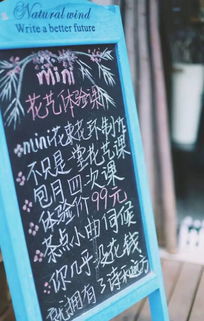 Natural wind
Write a better future
mini
花艺体验课
mini花束花环制作
不只是一堂花艺课
包月四次课
体验价99元
茶点小甜伺候
你几乎没花钱
就拥有了诗和远方